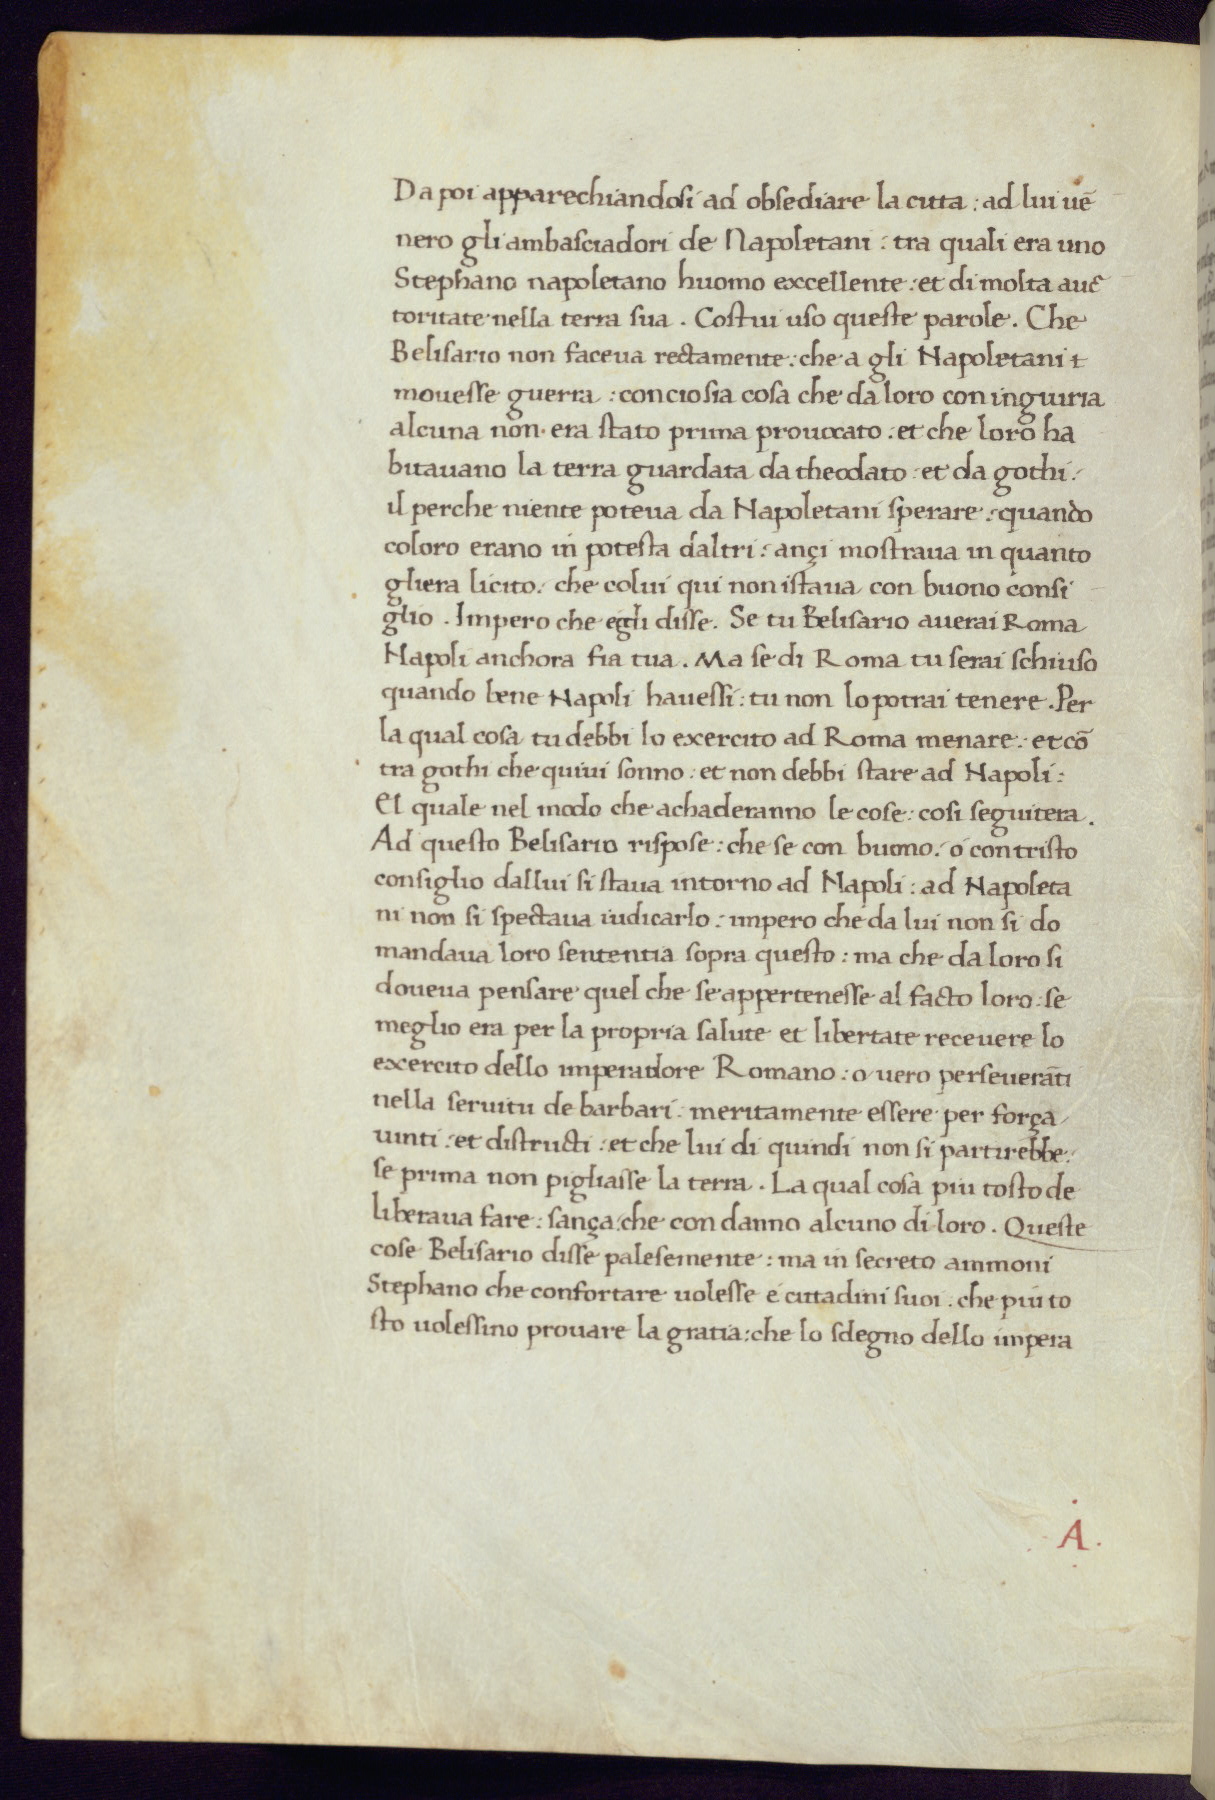 Da poi apparechiandosi ad obsediare la citta : ad lui uē
nero gli ambasciadori de Napoletani : tra quali era uno
Stephano napoletano huomo excellente : et di molta auc
toritate nella terra sua . Costui uso queste parole . Che
Belisario non faceua rectamente : che a gli Napoletani t
mouesse guerra : conciosia cosa che da loro con inguiria
alcuna non era stato prima prouocato : et che loro ha
bitauano la terra guardata da theodato : et da gothi :
il perche niente poteua da Napoletani sperare : quando
coloro erano in potesta daltri : ançi mostraua in quanto
gliera licito : che colui qui non istaua con buono consi
glio . Impero che egli disse . Se tu Belisario auerai Roma
Napoli anchora fia tua . Ma se di Roma tu serai schiuso
quando bene Napoli hauessi : tu non lo potrai tenere . Per
la qual cosa tu debbi lo exercito ad Roma menare : et cō
tra gothi che quiui sonno : et non debbi stare ad Napoli :
El quale nel modo che achaderanno le cose : cosi seguitera .
Ad questo Belisario rispose : che se con buono : o con tristo
consiglio dallui si staua intorno ad Napoli : ad Napoleta
ni non si spectaua iudicarlo : impero che da lui non si do
mandaua loro sententia sopra questo : ma che da loro si
doueua pensare quel che se appertenesse al facto loro : se
meglio era per la propria salute et libertate receuere lo
exercito dello imperadore Romano : o uero perseuerāti
nella seruitu de barbari : meritamente essere per força
uinti : et distructi : et che lui di quindi non si partirebbe :
se prima non pigliasse la terra . La qual cosa piu tosto de
liberaua fare : sança : che con danno alcuno di loro . Queste
cose Belisario disse palesemente : ma in secreto ammoni
Stephano che confortare uolesse e cittadini suoi : che piu to
sto uolessino prouare la gratia : che lo sdegno dello impera
. A .